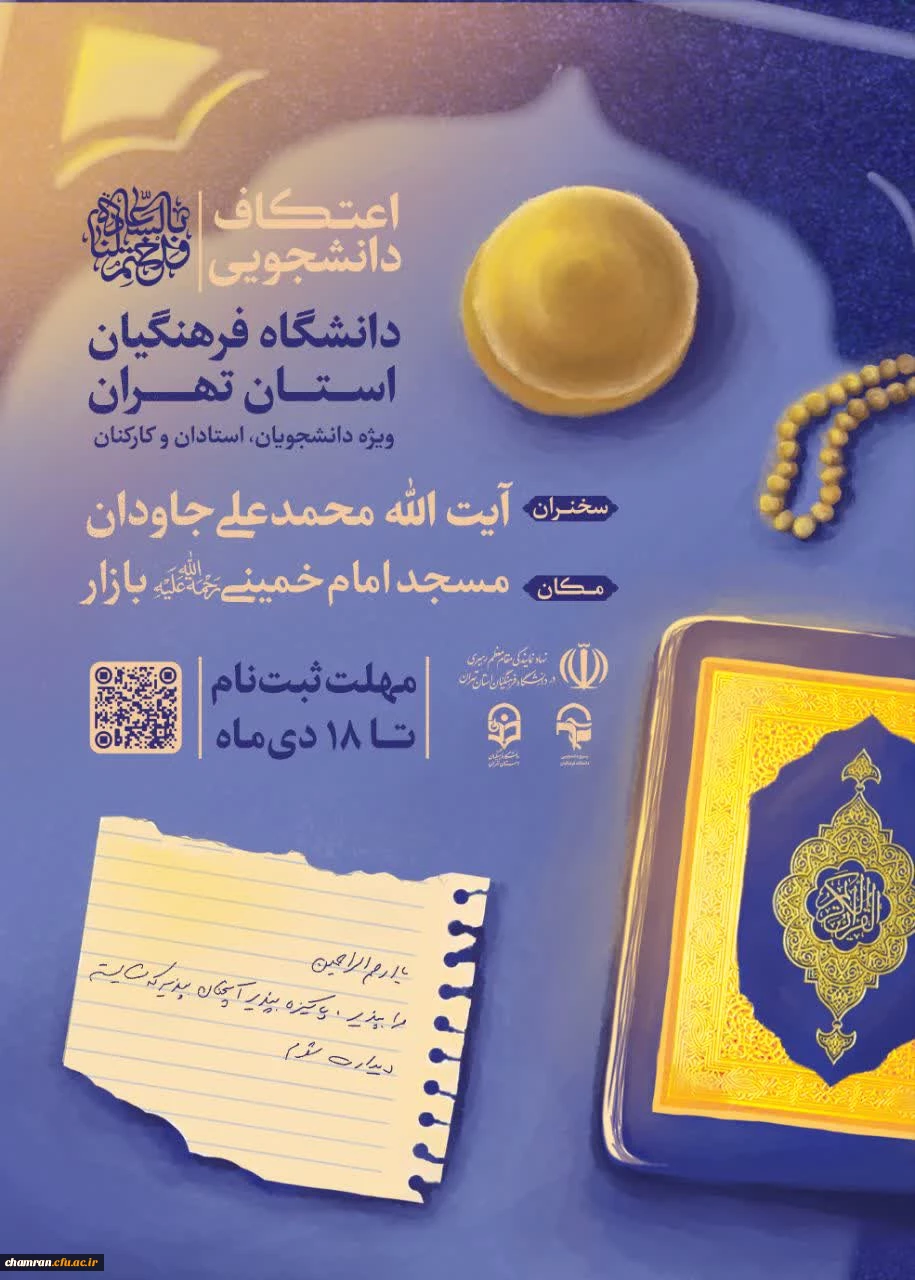 اعتکاف
دانشجویی
دانشگاه فرهنگیان
استان تهران
ویژه دانشجویان، استادان و کارکنان
سخنران
آیت الله محمدعلی جاودان
مکان
مسجد امام خمینی رحمة الله علیه بازار
نهاد نمایندگی مقام معظم رهبری
در دانشگاه فرهنگیان استان تهران
دانشگاه فرهنگیان
استان تهران
مهلت ثبت‌نام
تا ۱۸ دی‌ماه
یا ارحم الراحمین
مرا بپذیر، پاکیزه بپذیر آنچنان بپذیر که شایسته
دیدارت شوم
القرآن الکریم
chamran.cfu.ac.ir